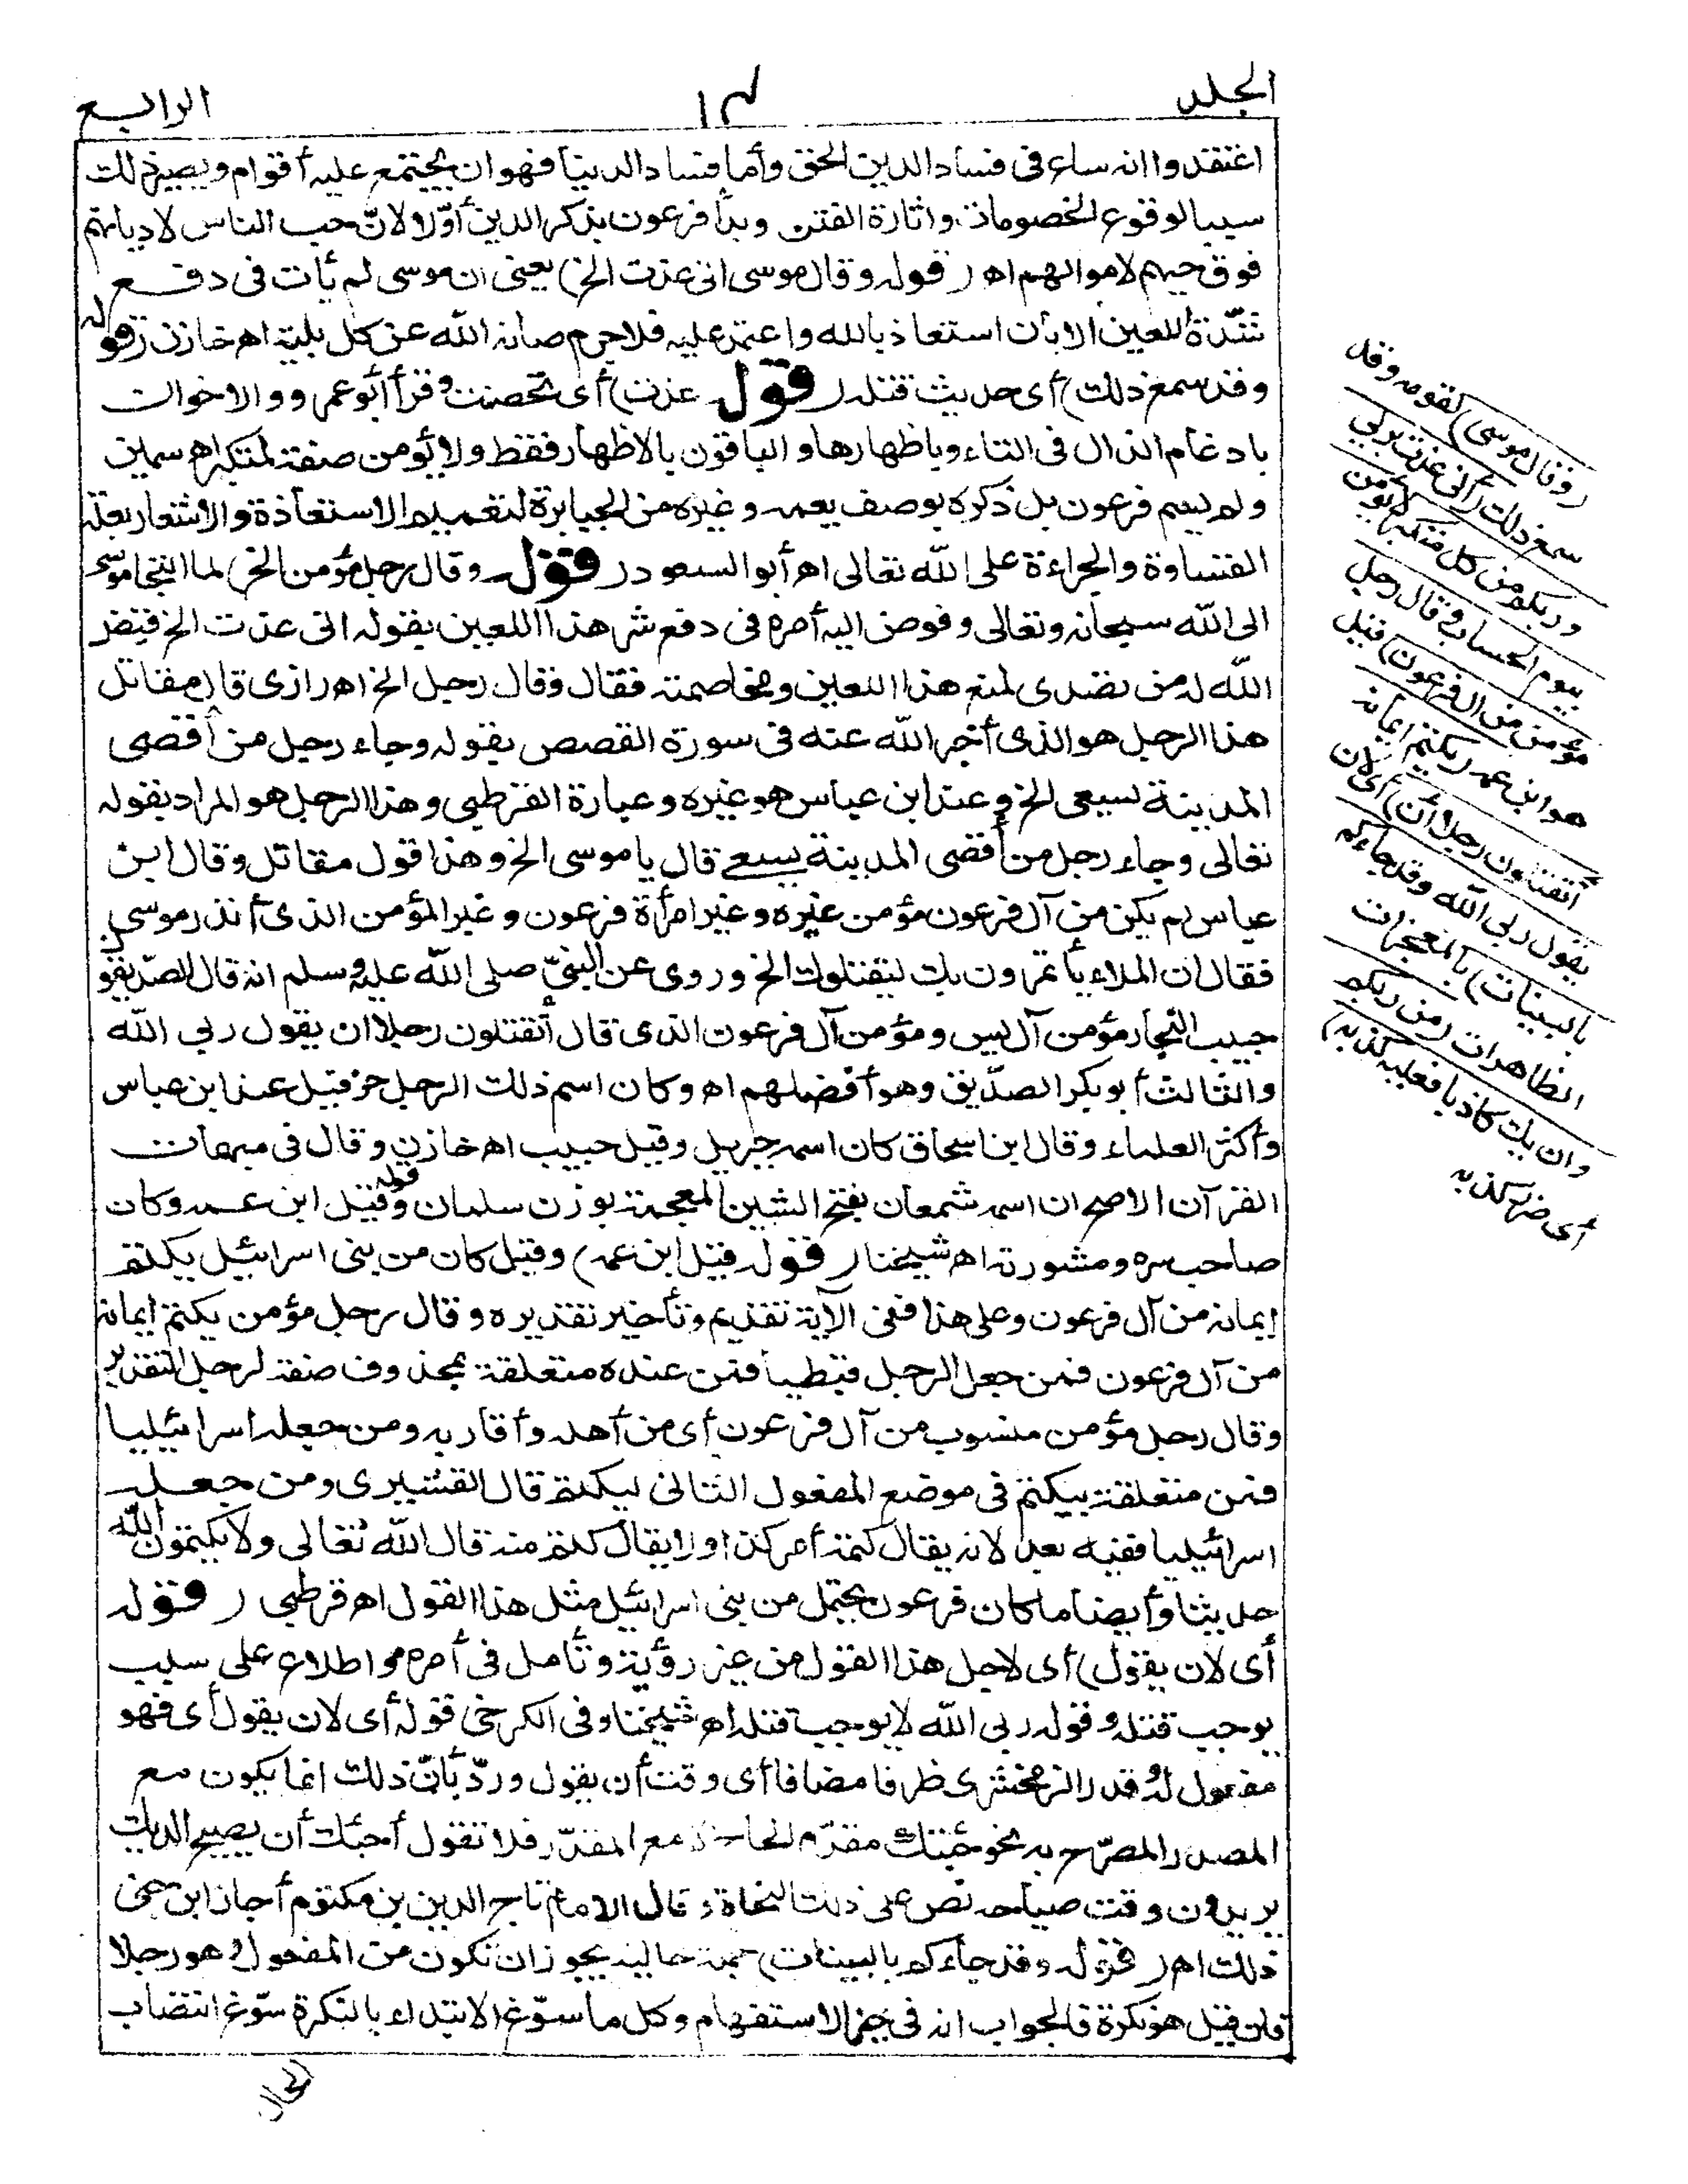 الجلد
١٣
الرابع
اعتقدوا انه ساع فى فساد الدين الحق وأما فساد الدنيا فهو ان يجتمع عليه أقوام ويصير ذلك
سببا لوقوع الخصومات واثارة الفتن وبدأ فرعون بذكر الدين أوّلا ولانّ حب الناس لاديانهم
فوق حبهم لاموالهم اه ( قوله وقال موسى انى عذت الخ) يعنى ان موسى لم يأت فى دفع
شدّة اللعين الا بان استعاذ بالله واعتمد عليه فلا جرم صانه الله عن كل بلية اه خازن (قوله
وقد سمع ذلك) أى حديث قتله ( قوله عذت) أى تحصنت وقرأ أبو عمرو والاخوان
بادغام الذال فى التاء وباظهارها والباقون بالاظهار فقط ولا يؤمن صفة لمتكبر اه سمين
ولم يسم فرعون بل ذكره بوصف يعمه وغيره من الجبابرة لتعميم الاستعاذة والاشعار بعلة
القساوة والجراءة على الله تعالى اه أبو السعود ( قوله وقال رجل مؤمن الخ) لما التجا موسى
الى الله سبحانه وتعالى وفوض اليه أمره فى دفع شر هذا اللعين بقوله انى عذت الخ قيض
الله له من تصدى لمنع هذا اللعين ومخاصمته فقال وقال رجل الخ اه رازى قال مقاتل
هذا الرجل هو الذى أخبر الله عنه فى سورة القصص بقوله وجاء رجل من أقصى
المدينة يسعى الخ وعند ابن عباس هو غيره وعبارة القرطبى وهذا الرجل هو المراد بقوله
تعالى وجاء رجل من أقصى المدينة يسعى قال يا موسى الخ وهذا قول مقاتل وقال ابن
عباس لم يكن من آل فرعون مؤمن غيره وغير امرأة فرعون وغير المؤمن الذى أنذر موسى
فقال ان الملاء يأتمرون بك ليقتلوك الخ وروى عن النبىّ صلى الله عليه وسلم انه قال الصدّيقون
حبيب النجار مؤمن آل يس ومؤمن آل فرعون الذى قال أتقتلون رجلا ان يقول ربى الله
والثالث أبو بكر الصدّيق وهو أفضلهم اه وكان اسم ذلك الرجل حزقيل عند ابن عباس
وأكثر العلماء وقال ابن اسحاق كان اسمه جبريل وقيل حبيب اه خازن وقال فى مبهمات
القرآن الاصح ان اسمه شمعان بفتح الشين المعجمة بوزن سلمان قوله وقيل ابن عمه وكان
صاحب سره ومشورته اه شيخنا ( قوله قيل ابن عمه) وقيل كان من بنى اسرائيل يكتم
إيمانه من آل فرعون وعلى هذا ففى الآية تقديم وتأخير تقديره وقال رجل مؤمن يكتم ايمانه
من آل فرعون فمن جعل الرجل قبطيا فمن عنده متعلقة بمحذوف صفة لرجل التقدير
وقال رجل مؤمن منسوب من آل فرعون أى من أهله وأقاربه ومن جعله اسرائيليا
فمن متعلقة بيكتم فى موضع المفعول الثانى ليكتم قال القشيرى ومن جعله
اسرائيليا ففيه بعد لانه يقال كتمه أمر كذا ولا يقال كتم منه قال الله تعالى ولا يكتمون الله
حديثا وأيضا ما كان فرعون يحتمل من بنى اسرائيل مثل هذا القول اه قرطبى ( قوله
أى لان يقول) أى لاجل هذا القول من غير رؤية وتأمل فى أمره مو اطلاع على سبب
يوجب قتله وقوله ربى الله لا يوجب قتله اه شيخنا وفى الكرخى قوله أى لان يقول أى فهو
مفعول له وقدر الزمخشرى ظرفا مضافا أى وقت أن يقول وردّ بأنّ ذلك انما يكون مع
المصدر المصرّح به نحو جئتك مقدم الحاج لا مع المقدّر فلا تقول أجيئك أن يصيح الديك
يريدون وقت صياحه نص على ذلك النحاة وقال الامام تاج الدين بن مكتوم أجاز ابن جنى
ذلك اه ( قوله وقد جاءكم بالبينات) جملة حالية يجوز ان تكون من المفعول وهو رجلا
فان قيل هو نكرة فالجواب انه فى حيز الاستفهام وكل ما سوّغ الابتداء بالنكرة سوّغ انتصاب
الحال
(وقال موسى) لقومه وقد
سمع ذلك (انى عذت بربى
وربكم من كل متكبر لا يؤمن
بيوم الحساب وقال رجل
مؤمن من آل فرعون) قيل
هو ابن عمه (يكتم ايمانه
أتقتلون رجلا أن) أى لان
يقول ربى الله وقد جاءكم
بالبينات) بالمعجزات
الظاهرات (من ربكم
وان يك كاذبا فعليه كذبه)
أى ضرر كذبه